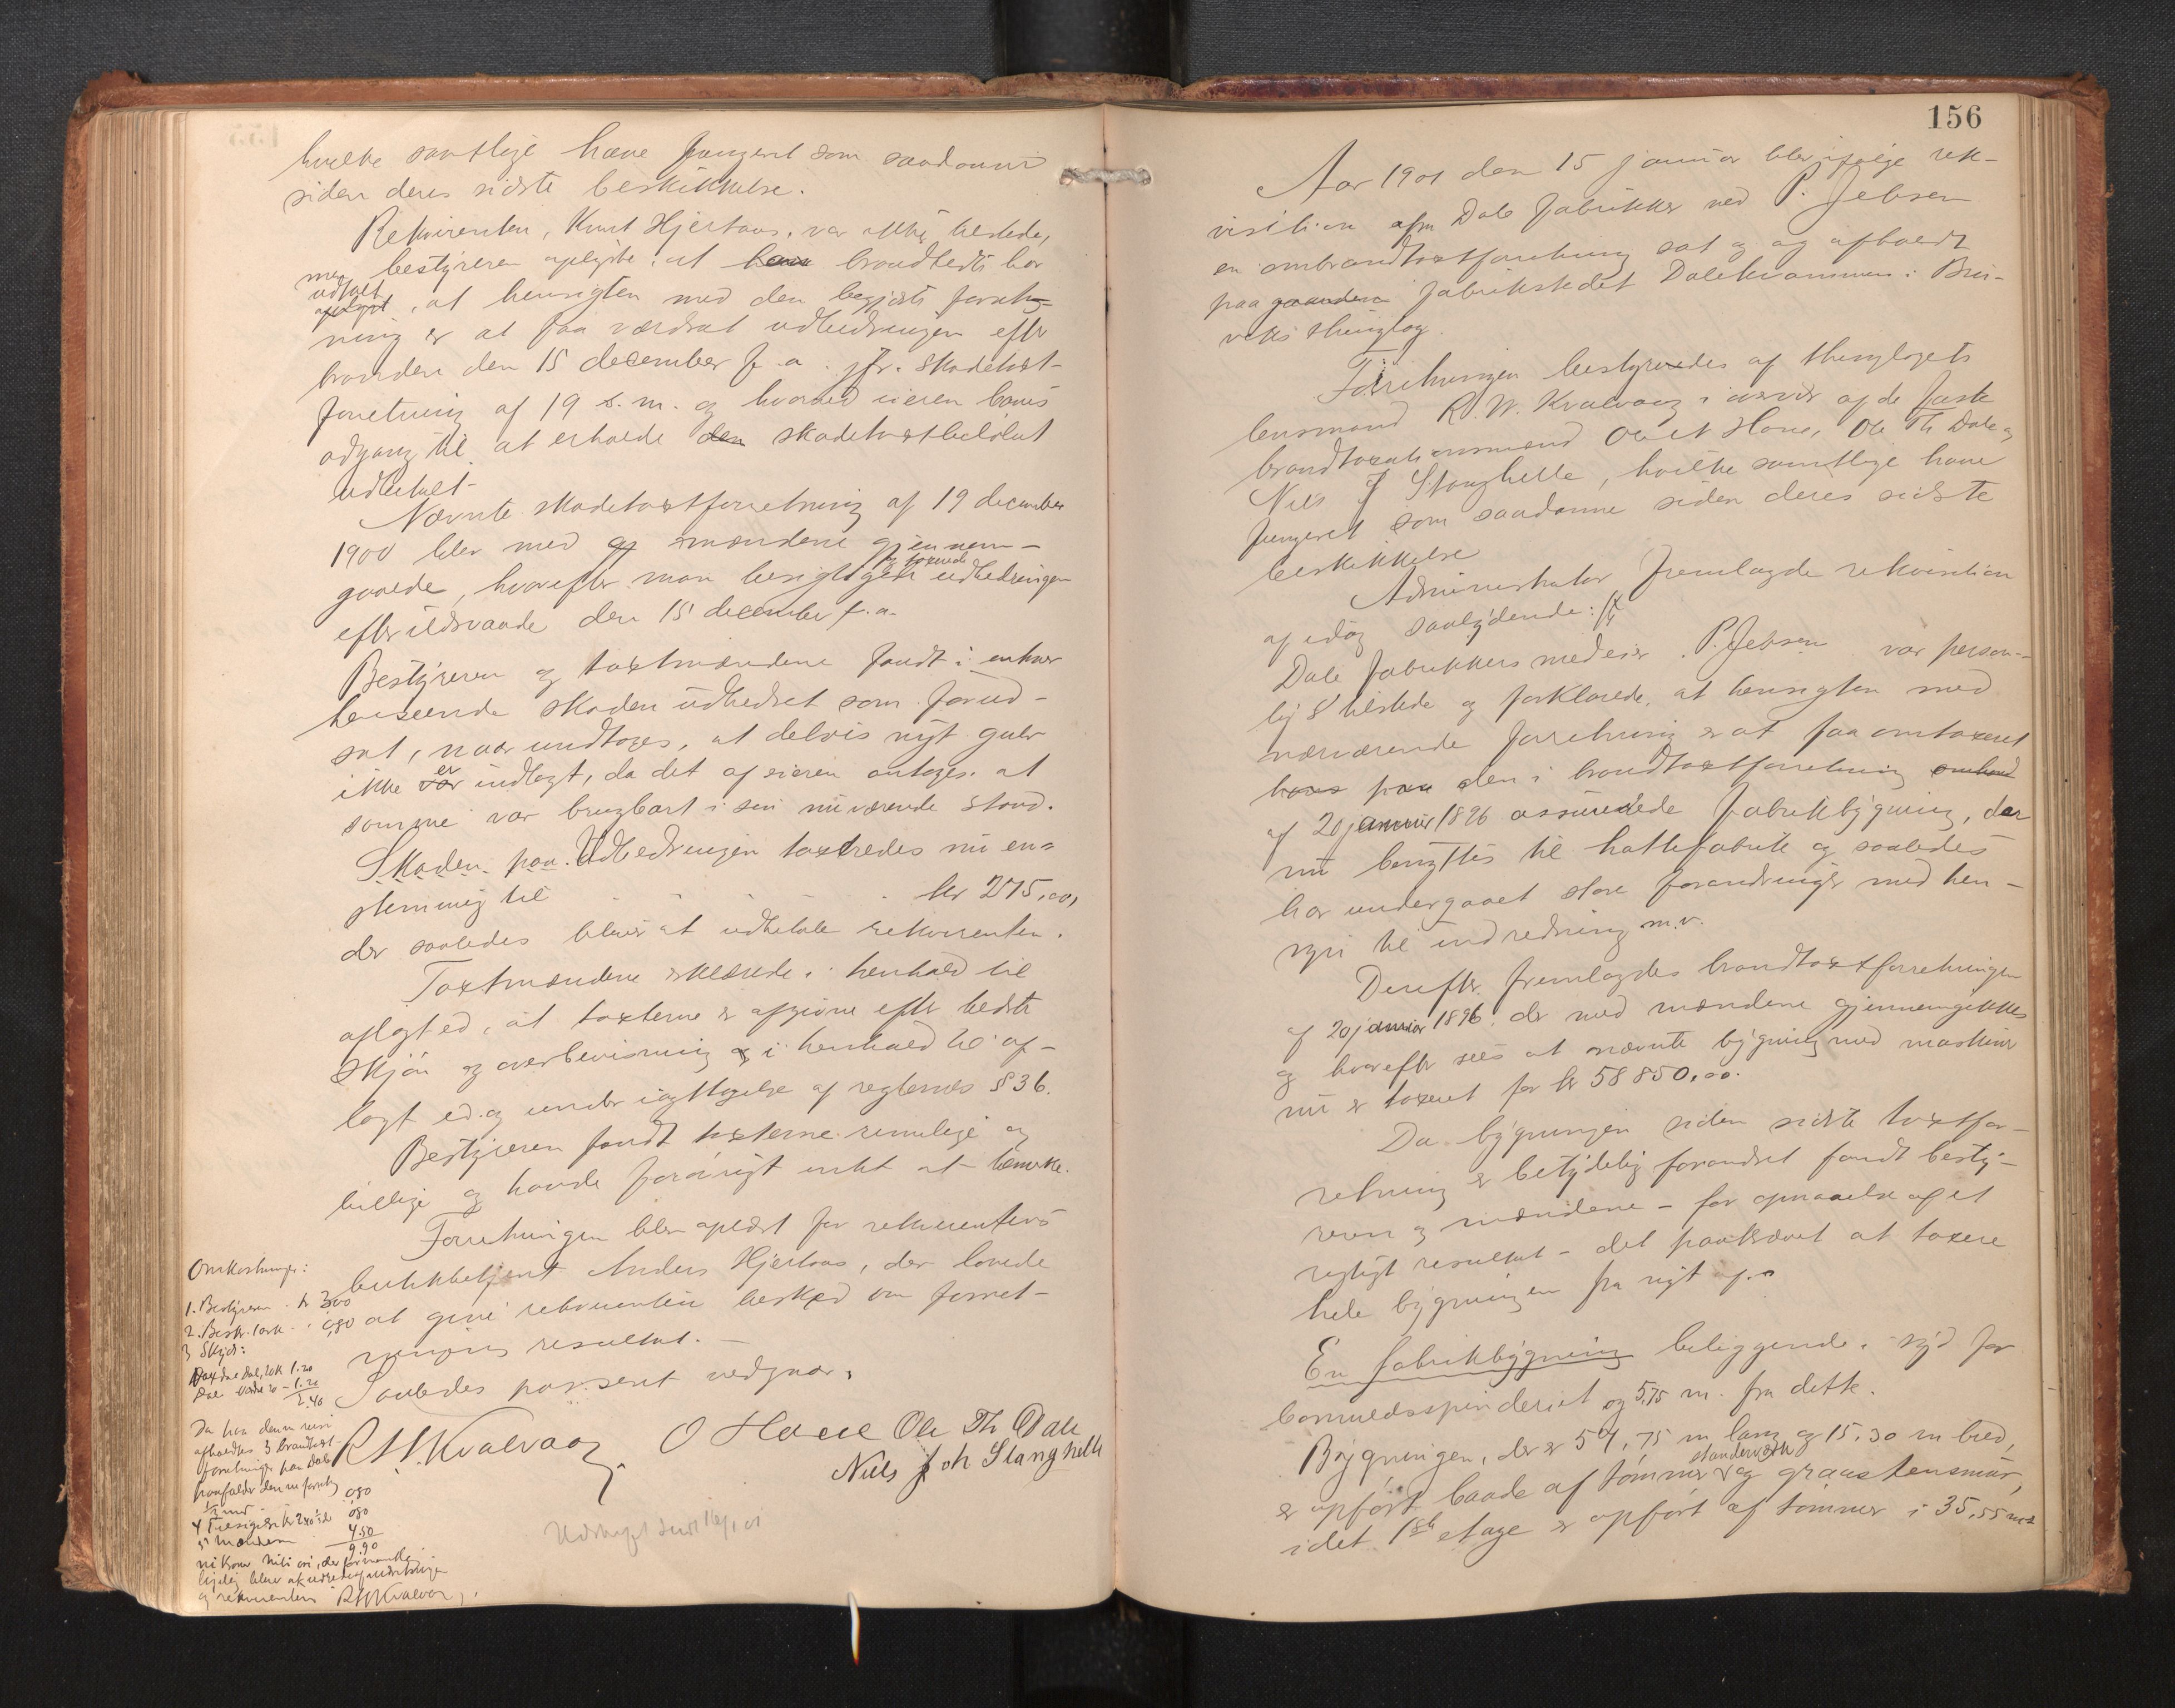 hvilke samtlige have fungeret som saadanne
siden deres sidste beskikkelse.
Rekvirenten, Knut Hjertaas, var ikke tilstede,
men bestyreren oplyste, at han brandlidte har
udtalt
oplyst, at hensigten med den begjærte forret-
ning er at faa værdsat udbedringen efter
branden den 15 december f. a. jfr. skadetaxt-
forretning af 19 s. m. og hvorved eieren
adgang til at erholde den skadetaxtbeløbet
udbetalt.
Nævnte skadetaxtforretning af 19 december
1900 blev med og mændene gjennem-
gaaede, hvorefter man besigtigede og taxerede udbedringen
efter ildsvaade den 15 december f. a.
Bestyreren og taxtmændene fandt i enhver
henseende skaden udbedret som forud-
sat, naar undtages, at delvis nyt gulv
ikke var er indlagt, da det af eieren antages, at
samme var brugbart i sin nuværende stand.
Skaden paa. Udbedringen taxeredes nu en-
stemmig til kr 275,00,
der saaledes bliver at udbetale rekvirenten.
Taxtmændene erklærede i henhold til
aflagt ed, at taxterne er afgivne efter bedste
skjøn og overbevisning og i henhold til af-
lagt ed og under iagttagelse af reglernes § 36.
Bestyreren fandt taxterne rimelige og
billige og havde forøvrigt intet at bemerke.
Forretningen blev oplæst for rekvirentens
butikbetjent Anders Hjertaas, der lovede
at give rekvirenten besked om forret-
ningens resultat.
Saaledes passeret vedgaar.
R. W. Kvalvaag O Hane Ole Th Dale
Niels Joh Stanghelle
Omkostninger:
1. Bestyreren kr 3,00
2. Beskr. 1 ark 0,80
3 Skyds:
Dale, 20 k 1.20
Dale 20 - 1.20
2.40
afholdtes 3 brandtaxt-
forretninger paa Dale
paafalder denne forretn
0,80
0,80
4.50
9.90
og rekvirenten R W Kvalvaag.
Udskrift 16/1 01
156
Aar 1901 den 15 januar blev ifølge rek-
visition af fra Dale fabrikker ved P. Jebsen
en ombrandtaxtforretning sat og og afholdt
paa gaarden fabrikstedet Dalekvammen i Bru-
viks thinglag.
Forretningen bestyredes af thinglagets
lensmand R. W. Kvalvaag i overvær af de faste
brandtaxationsmænd Hane, Ole Th Dale og
Niels J Stanghelle, hvilke samtlige have
fungeret som saadanne siden deres sidste
beskikkelse
Administrator fremlagde rekvisition
af idag saalydende:
Dale fabrikkers medeier P. Jebsen var person-
lig tilstede og forklarede, at hensigten med
nærværende forretning er at faa omtaxeret
hans paa den i brandtaxtforretning
af 20 januar 1896 assurerede fabrikbygning, der
nu benyttes til hattefabrik og saaledes
har undergaaet store forandringer med hen-
syn til indredning m.v.
Derefter fremlagdes brandtaxtforretningen
af 20 januar 1896 der med mændene gjennemgikkes
og hvorefter sees at nævnte bygning med maskiner
nu er taxeret for kr 58 850,00.
Da bygningen siden sidste taxtfor-
retning er betydelig forandret fandt besty-
reren og mændene - for opnaaelse af et
rigtigt resultat - det paakrævet at taxere
hele bygningen fra nyt af.
En fabrikbygning beliggende syd for
bomuldsspinderiet og 5,75 m. fra dette.
Bygningen, der er 54,75 m lang og 15,30 m bred,
er opført baade af tømmer standerværk og graastensmur,
idet 1ste etage er opført af tømmer i 35,55 m